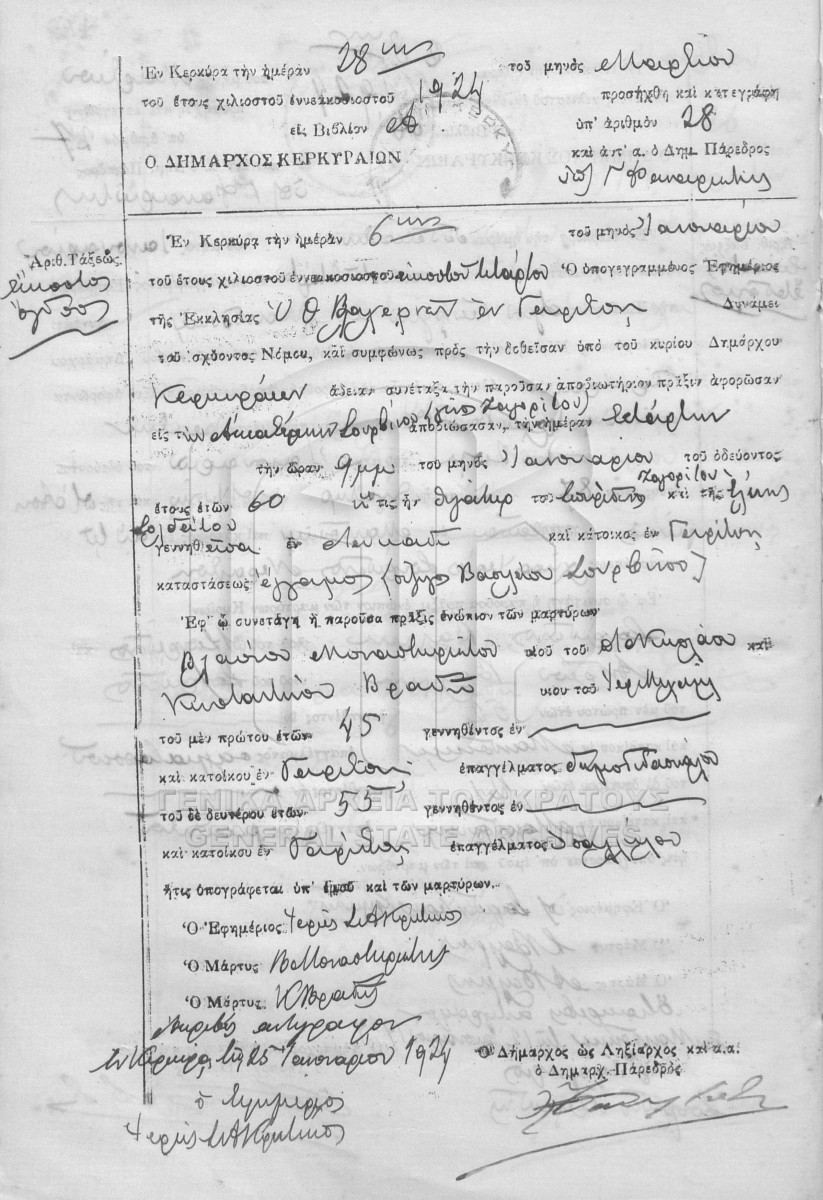 Ἐν Κερκύρᾳ τὴν ἡμέραν 28ην τοῦ μηνὸς Μαρτίου
τοῦ ἔτους χιλιοστοῦ ἐννεακοσιοστοῦ 1924 προσήχθη καὶ κατεγράφη
εἰς Βιβλίον Α ὑπ' ἀριθμὸν 28
Ο ΔΗΜΑΡΧΟΣ ΚΕΡΚΥΡΑΙΩΝ καὶ ἀπ' α. ὁ Δημ. Πάρεδρος
Ἐν Κερκύρᾳ τὴν ἡμέραν 6ην τοῦ μηνὸς Ἰανουαρίου
Ἀριθ. Τάξεως
εἰκοστὸς
ὄγδοος
τοῦ ἔτους χιλιοστοῦ ἐννεακοσιοστοῦ εἰκοστοῦ τετάρτου Ὁ ὑπογεγραμμένος Ἐφημέριος
τῆς Ἐκκλησίας Υ Θ Βλαχερνῶν ἐν Γαρίτσῃ Δυνάμει
τοῦ ἰσχύοντος Νόμου, καὶ συμφώνως πρὸς τὴν δοθεῖσαν ὑπὸ τοῦ κυρίου Δημάρχου
Κερκυραίων ἄδειαν συνέταξα τὴν παροῦσαν ἀποβιωτήριον πρᾶξιν ἀφορῶσαν
εἰς τὴν Αἰκατερίνην Σουρβίνου (γένος Ζαγορίτου) ἀποβιώσασαν τὴν ἡμέραν τετάρτην
τὴν ὥραν 9 μμ τοῦ μηνὸς Ἰανουαρίου τοῦ ὁδεύοντος
ἔτους ἐτῶν 60 ἥτις ἦν θυγάτηρ τοῦ Ζαγορίτου καὶ τῆς Ἑλένης
γεννηθεῖσα ἐν Λευκάδι καὶ κάτοικος ἐν Γαρίτσῃ
καταστάσεως ἔγγαμος (σύζυγος Βασιλείου Σουρβίνου)
Ἐφ' ᾧ συνετάγη ἡ παροῦσα πρᾶξις ἐνώπιον τῶν μαρτύρων
Βλασίου Μοναστηριώτου υἱοῦ τοῦ Νικολάου καὶ
Κωνσταντίνου Βραδῆ υἱοῦ τοῦ
τοῦ μὲν πρώτου ἐτῶν 45 γεννηθέντος ἐν
καὶ κατοίκου ἐν Γαρίτσῃ ἐπαγγέλματος
ΓΕΝΙΚΑ ΑΡΧΕΙΑ ΤΟΥ ΚΡΑΤΟΥΣ
τοῦ δὲ δευτέρου ἐτῶν 55 γεννηθέντος ἐν
GENERAL STATE ARCHIVES
καὶ κατοίκου ἐν Γαρίτσῃ ἐπαγγέλματος
ἥτις ὑπογράφεται ὑπ' ἐμοῦ καὶ τῶν μαρτύρων.
Ὁ Ἐφημέριος
Ὁ Μάρτυς Β Μοναστηριώτης
Ὁ Μάρτυς Κ Βραδῆς
Ἀκριβὲς ἀντίγραφον
Ἐν Κερκύρᾳ τῇ 25 Ἰανουαρίου 1924
Ὁ Δήμαρχος ὡς Ληξίαρχος καὶ α.α.
ὁ Δημαρχ. Πάρεδρος
ὁ ἐφημέριος